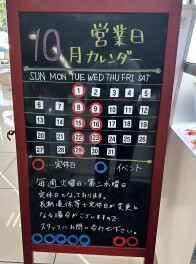 10月 営業日
カレンダー
SUN MON TUE WED THU FRI SAT
1 2 3 4 5
6 7 8 9 10 11 12
13 14 15 16 17 18 19
20 21 22 23 24 25 26
27 28 29 30 31
○…定休日 ○…イベント
毎週火曜日・第二水曜日
定休日となっております。
長期連休等で定休日が変更と
なる場合がございますので
スタッフにお問い合わせ下さい。